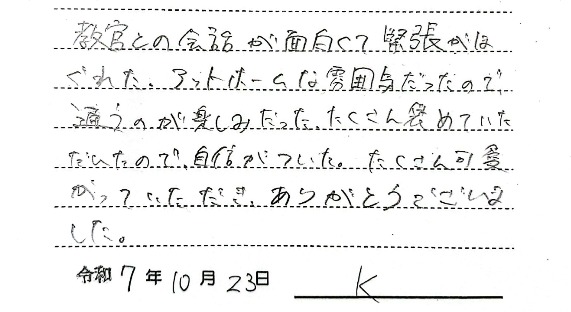 教官との会話が面白くて緊張がほ
ぐれた。アットホームな雰囲気だったので
通うのが楽しみだった。たくさん褒めていた
だいたので、自信がついた。たくさん可愛
がっていただき、ありがとうございま
した。
令和7年10月23日 K